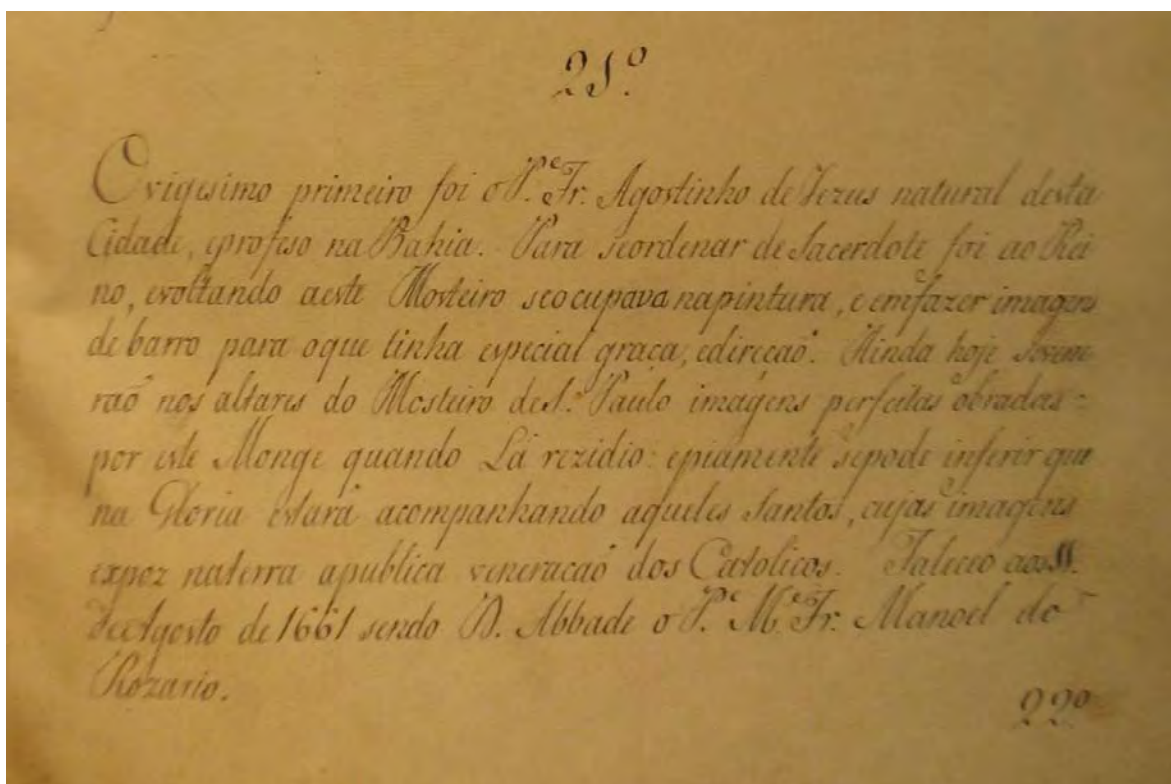 21º
O vigesimo primeiro foi o P.e Fr. Agostinho de Jezus natural desta
Cidade, eprofeso na Bahia. Para seordenar de Sacerdote foi ao Rei
no, evoltando aeste Mosteiro seocupava napintura, e emfazer imagens
de barro para oque tinha especial graça, edireçaõ. Ainda hoje sevene
raõ nos altares do Mosteiro deS. Paulo imagens perfeitas obradas
por este Monge quando Lá rezidio: epiamente sepode inferir que
na Gloria estará acompanhando aqueles Santos, cujas imagens
expoz naterra apublica veneracaõ dos Catolicos. Faleceo aos
deAgosto de 1661 sendo D. Abbade o P.e M.e Fr. Manoel do
Rozario.
22º